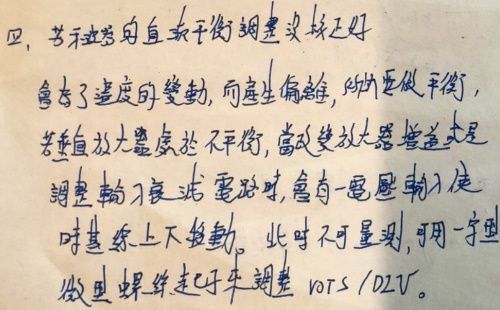 四、若示波器的直流平衡調整沒校正好
會為了溫度的變動,而產生偏離,所以要做平衡,
若垂直放大器處於不平衡,當改變放大器增益或是
調整輸入衰減電路時,會有一電壓輸入使
時基線上下移動。此時不可量測,可用一字型
微型螺絲起子來調整 VOTS/DIV。